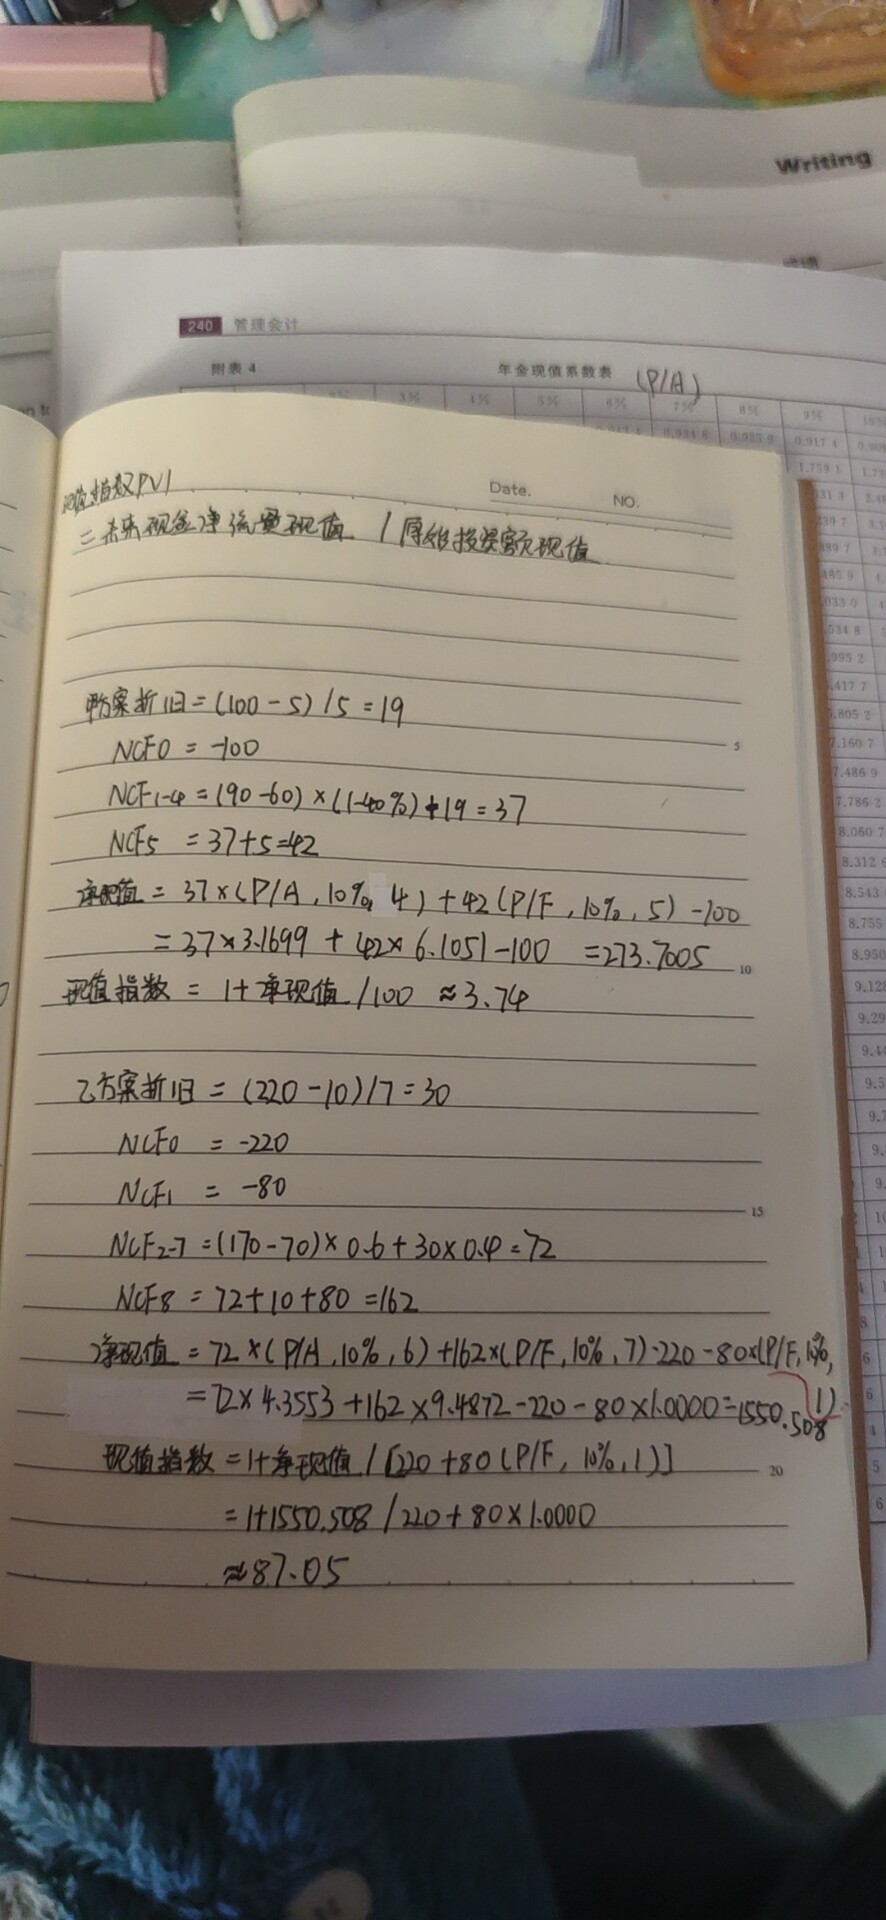 Writing
240 管理会计
附表4 年金现值系数表 (P/A)
3% 4% 5% 6% 7% 8% 9%
0.917 4
1.759 1
现值指数PVI
Date. NO.
=未来现金净流量现值 / 原始投资额现值
甲方案折旧=(100-5)/5=19
5
NCF0 = -100
NCF1-4=(90-60)×(1-40%)+19=37
NCF5 =37+5=42
净现值= 37×(P/A,10%,4)+42(P/F,10%,5)-100
=37×3.1699 + 42×6.1051-100 =273.7005
10
现值指数 = 1+净现值/100 ≈3.74
乙方案折旧=(220-10)/7=30
NCF0 = -220
NCF1 = -80
15
NCF2-7=(170-70)×0.6+30×0.4=72
NCF8 =72+10+80=162
净现值=72×(P/A,10%,6)+162×(P/F,10%,7)-220-80×(P/F,10%,1)
=72×4.3553+162×9.4872-220-80×1.0000=1550.508
现值指数=1+净现值/[220+80(P/F,10%,1)]
20
=1+1550.508/220+80×1.0000
≈87.05
7.160 7
7.486 9
7.786 2
8.060 7
8.312 6
8.543
8.755
8.950
9.128
9.29